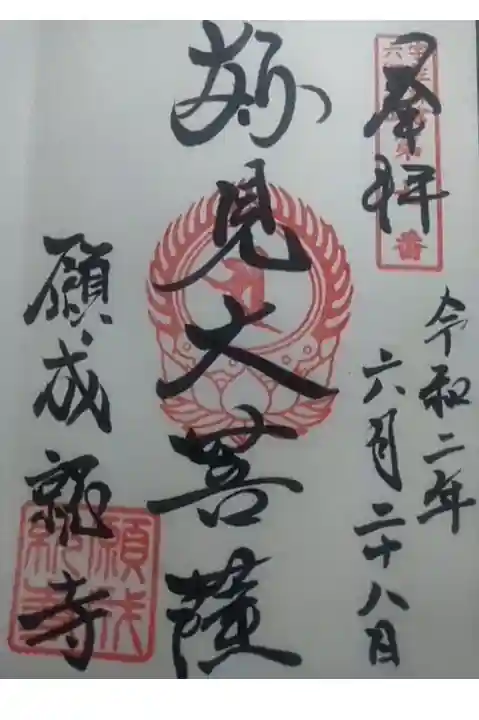 奉拝
令和二年
六月二十八日
妙見大菩薩
願成就寺